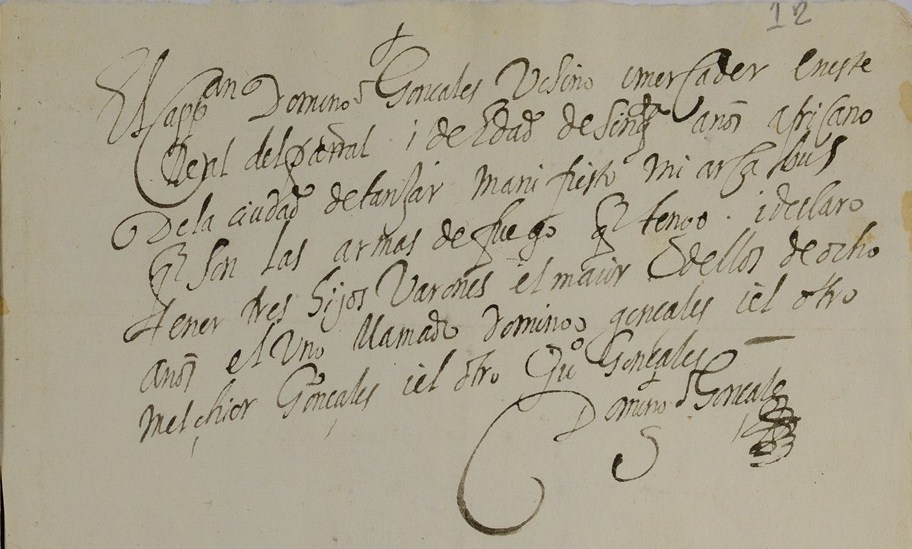 12
El cappan Domingo Gonçales Vesino i mercader en este
Real del parral i de Edad de sinqta anos africano
De la ciudad de tanjar manifiesto mi arcabus
q son las armas de fuego q tengo . i declaro
tener tres hijos Varones el maior dellos de ocho
anos el Uno llamado Domingo gonçales i el otro
Melchior Gonçales i el otro Gonçales
Domingo Gonçales